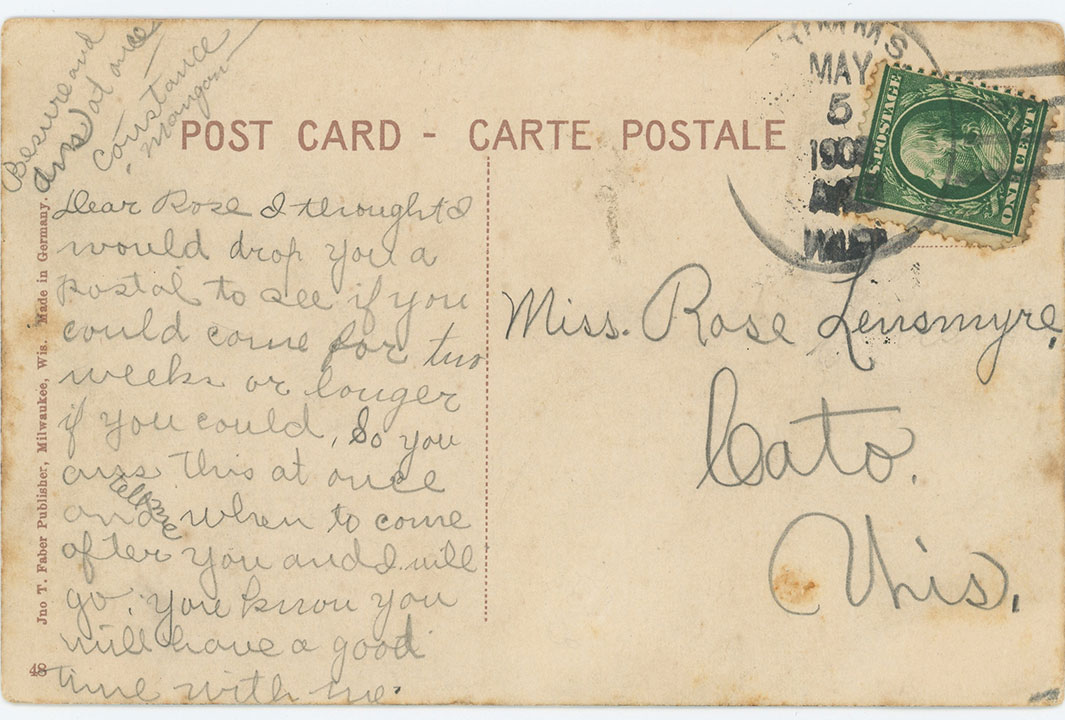 Be sure and
ans at once
Constance
Mangan
POST CARD - CARTE POSTALE
MAY
5
190
A.M.
WIS.
U.S. POSTAGE
ONE CENT
Dear Rose I thought I
would drop you a
postal to see if you
could come for two
weeks or longer
if you could, So you
ans this at once
and tell me when to come
after you and I will
go. you know you
will have a good
time with me.
Miss. Rose Lensmyre,
Cato.
Wis.
Jno T. Faber Publisher, Milwaukee, Wis. Made in Germany.
48